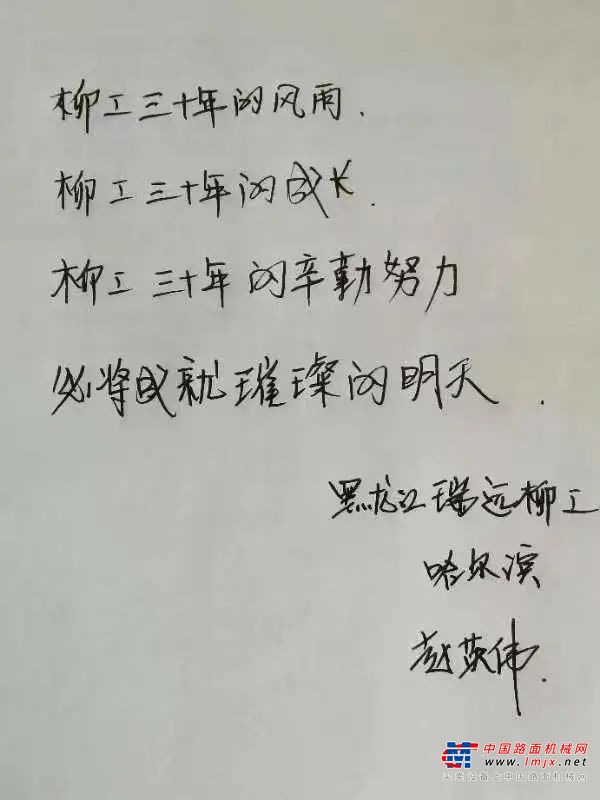 柳工三十年的风雨.
柳工三十年的成长.
柳工三十年的辛勤努力
必将成就璀璨的明天.
黑龙江瑞远柳工
哈尔滨
赵英伟.
中国路面机械网
www.lmjx.net
买卖设备上中国路面机械网